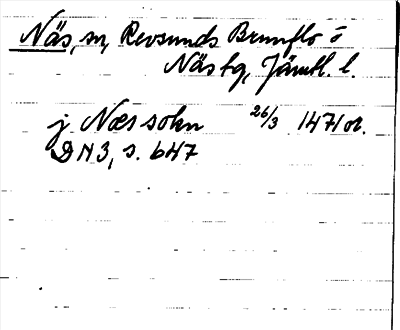 Näs, sn, Revsunds Brunflo o
Näs tg, Jämtl. l.
j Næs sokn 26/3 1471 or.
DN 3, s. 647